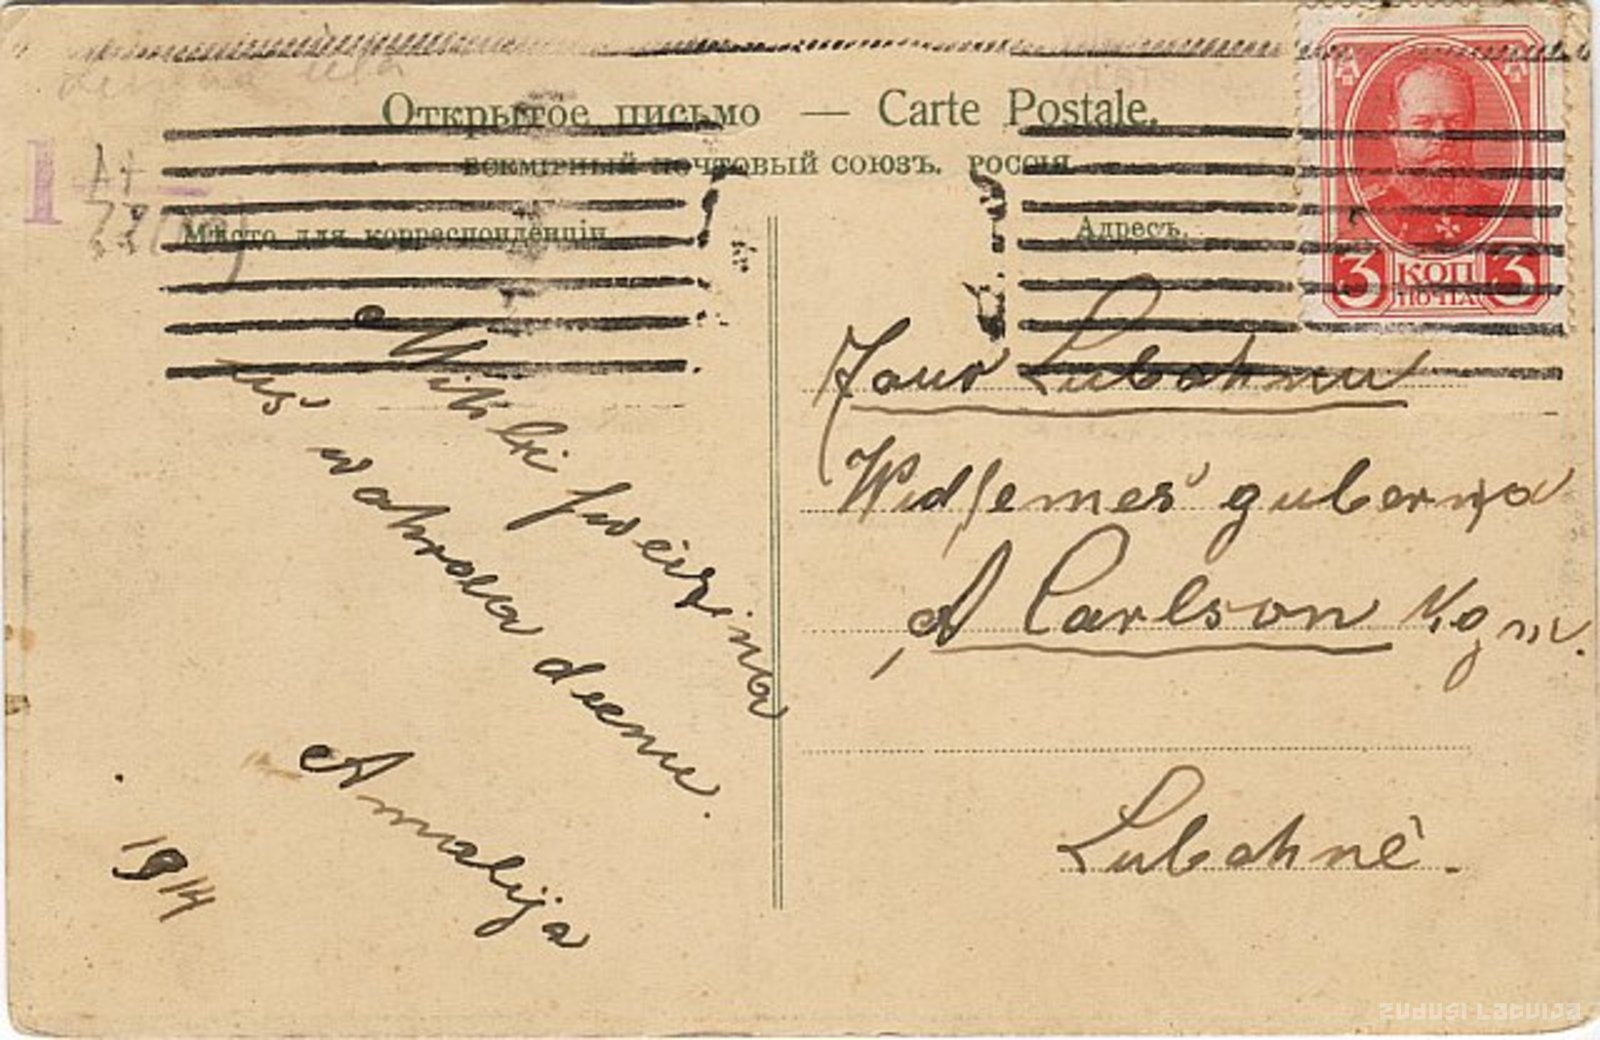 Открытое письмо — Carte Postale.
ВСЕМІРНЫЙ ПОЧТОВЫЙ СОЮЗЪ. РОССІЯ
Мѣсто для корреспонденціи
Адресъ.
3 КОП 3
ПОЧТА
Miļi sweizina
us wahrda deenu.
Amalija
1914
Lubahnu
Widsemes guberņa
A Carlson kgm.
Lubahnê.
ZUDUSI LATVIJA